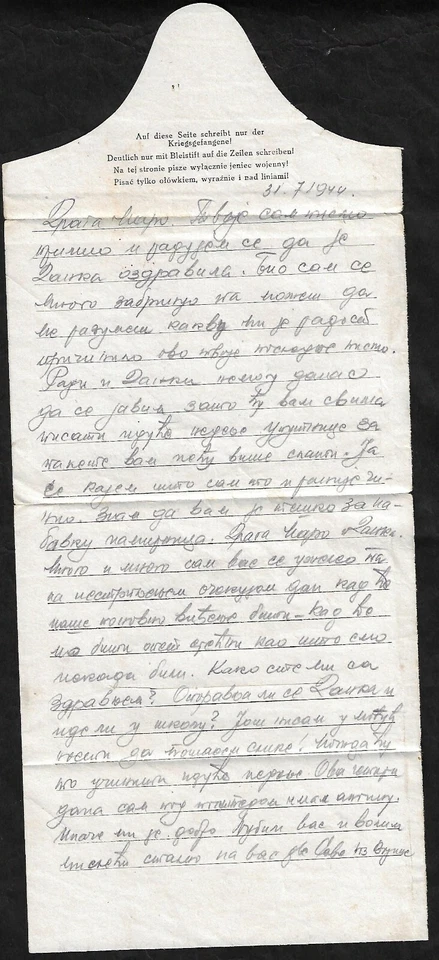 Auf diese Seite schreibt nur der
Kriegsgefangene!
Deutlich nur mit Bleistift auf die Zeilen schreiben!
Na tej stronie pisze wyłącznie jeniec wojenny!
Pisać tylko ołówkiem, wyraźnie i nad liniami!
31.7.1944.
Драга Маро. Твоје сам писмо
примио и радујем се да је
Данка оздравила. Био сам се
много забринуо па можеш да
ме разумеш какву ми је радост
причинило ово твоје последње писмо.
и Данки немогу данас
да се јавим зато ћу вам свима
писати идуће недеље
вам нећу више слати. Ја
се кајем што сам то и раније чи-
нио. Знам да вам је тешко за на-
бавку намирница. Драга Маро и Данка.
Много и много сам вас се
са нестрпљењем очекујем дан кад ће
поново бити кад ће
мо бити опет срећни као што смо
некада били. Како сте ми са
здрављем? Опоравља ли се Данка и
иде ли у школу? Још нисам у
да пошаљем слике! Можда ћу
то учинити идуће недеље.
дана сам под имам ангину.
Иначе ми је добро. Љубим вас и волим
мислећи стално на вас две Сава